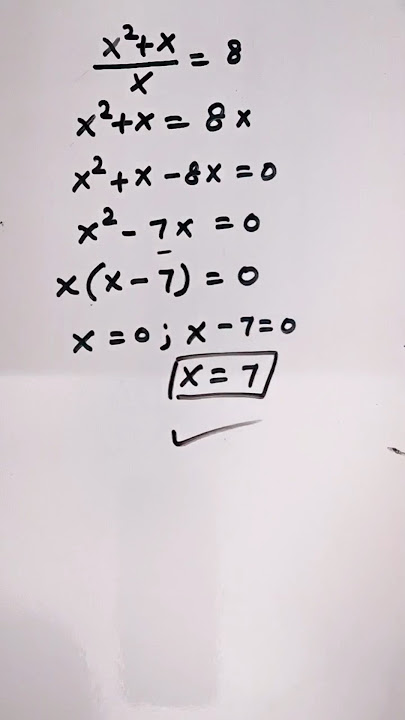 x²+x
───── = 8
x
x²+x = 8x
x²+x-8x=0
x²-7x=0
x(x-7)=0
x=0; x-7=0
x=7
✓